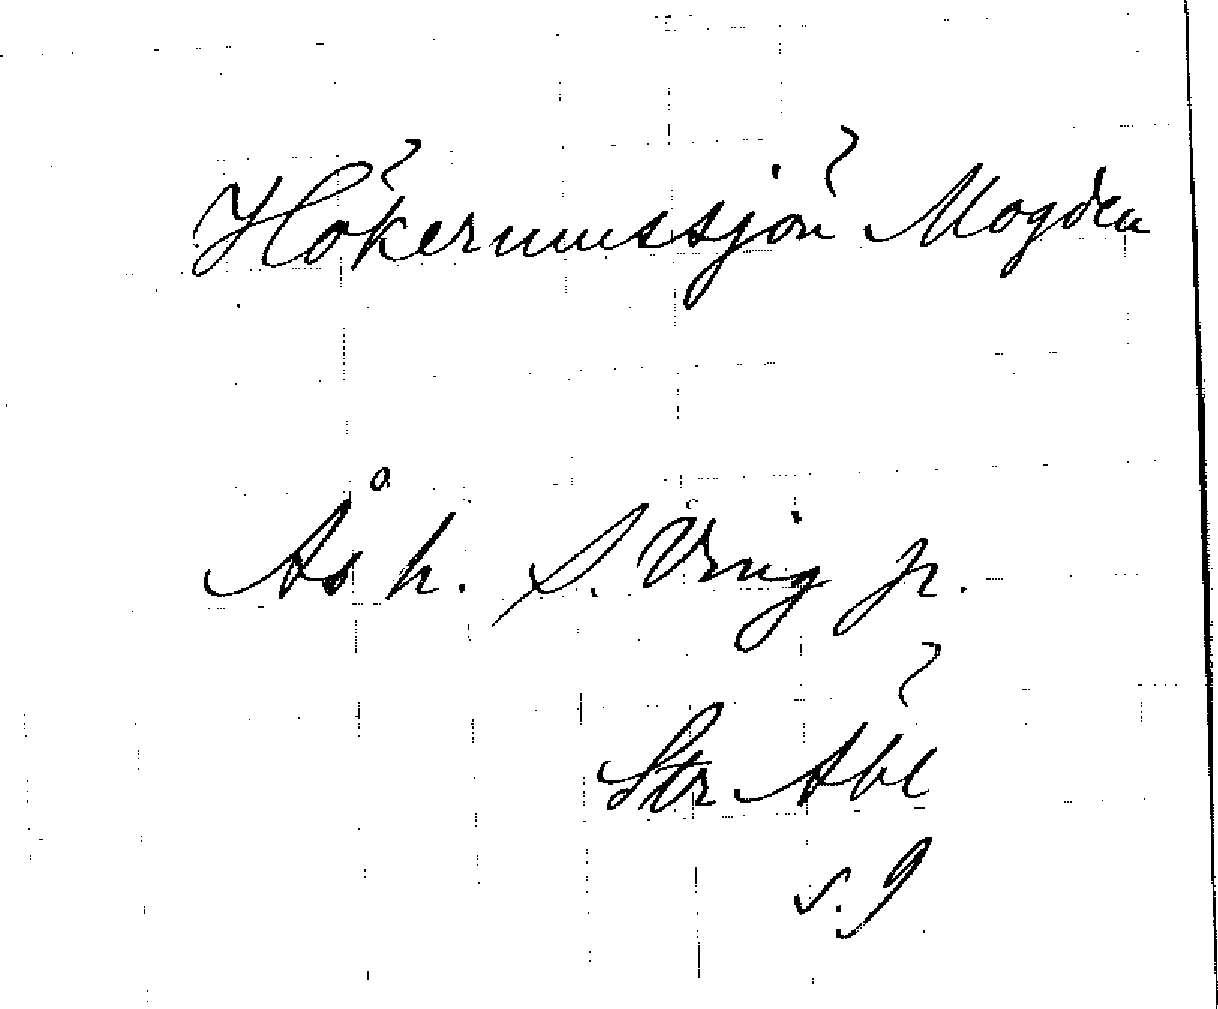 Hökerumssjön Mogden
Ås h. S. Ving p.
Str Äbl
s. 9